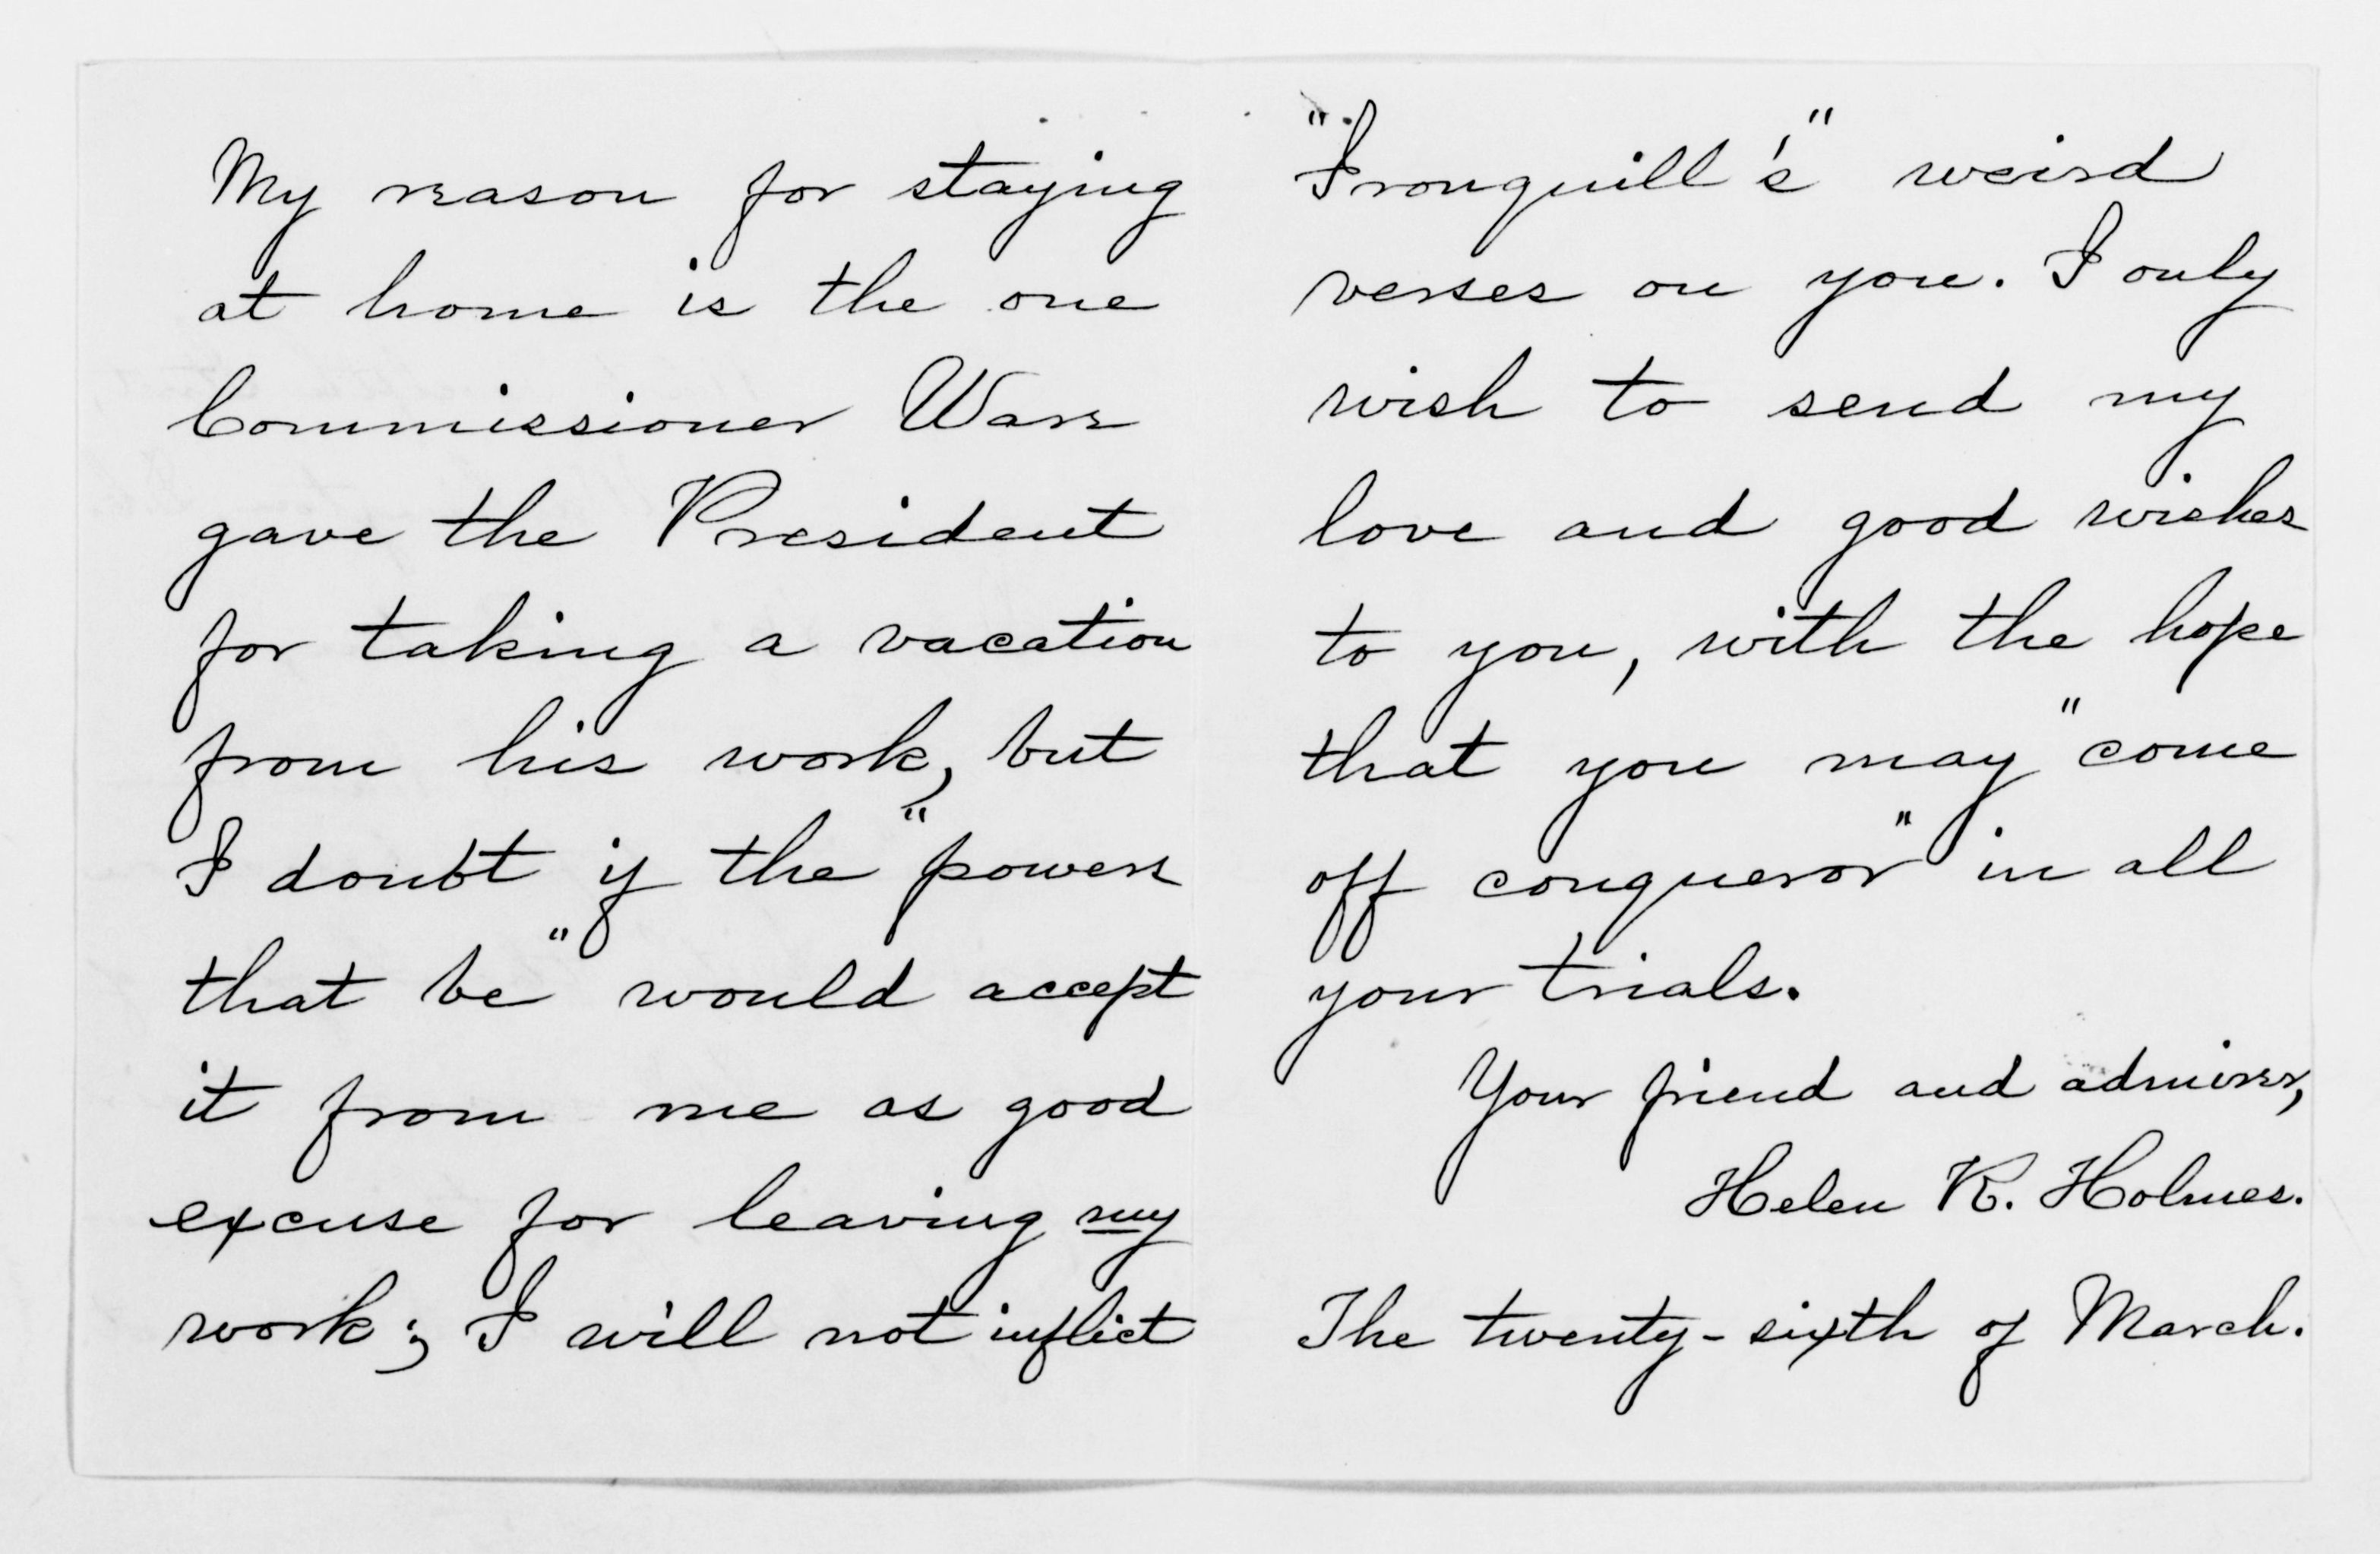 My reason for staying
at home is the one
Commissioner Ware
gave the President
for taking a vacation
from his work, but
I doubt if the "powers
that be" would accept
it from me as good
excuse for leaving my
work; I will not inflict
"Ironquill's" weird
verses on you. I only
wish to send my
love and good wishes
to you, with the hope
that you may "come
off conqueror" in all
your trials.
Your friend and admirer,
Helen R. Holmes.
The twenty-sixth of March.